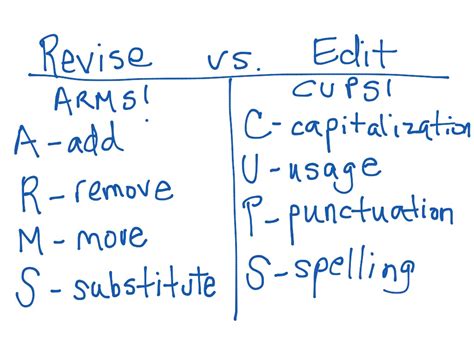 Revise vs. Edit
ARMS!
A-add
R-remove
M-move
S-substitute
CUPS!
C-capitalization
U-usage
P-punctuation
S-spelling